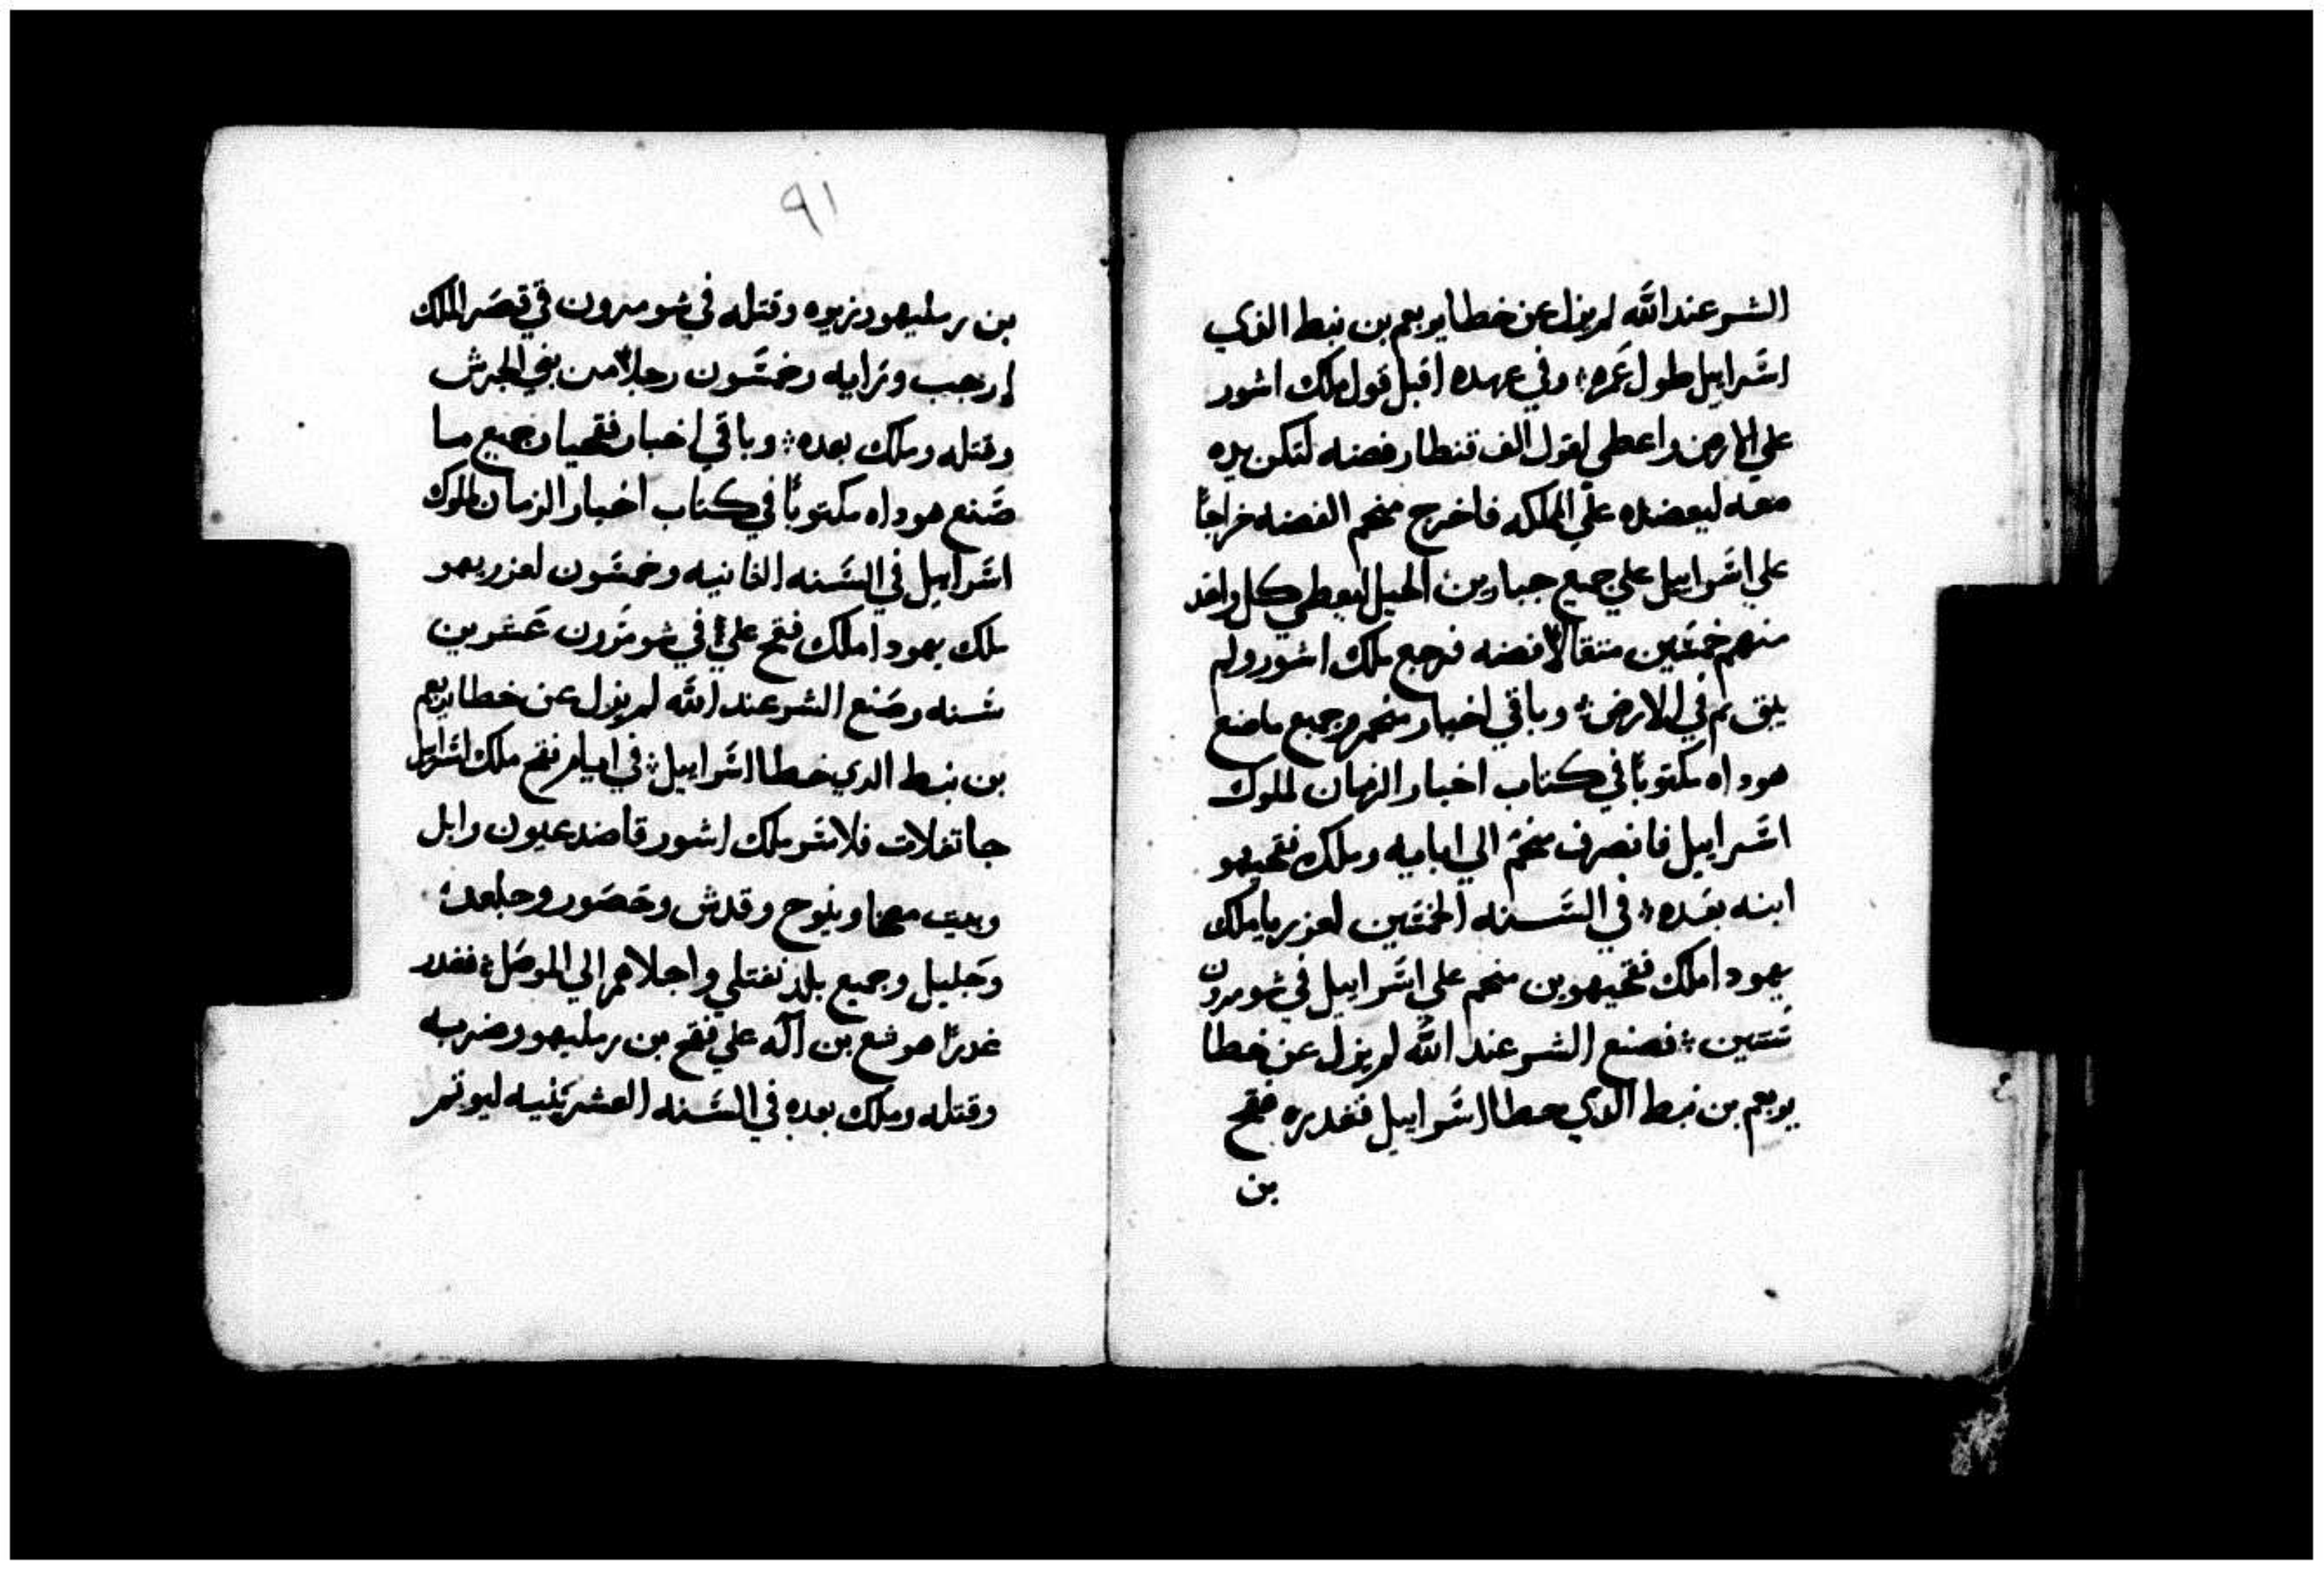 الشر عند الله لم يزل عن خطا يوبعم بن نبط الذي
اسرابيل طول عمره وفي عهده اقبل فول ملك اشور
علي الارض واعطي لفول الف قنطار فضه لتكن يده
معه ليعضده علي المملكه فاخرج منحم الفضه خراجًا
علي اسرابيل علي جميع جبارين الحيل ليعطي كل واحد
منهم خمسين مثقالًا فضه فرجع ملك اشور ولم
يلق ثم في الارض وباقي اخبار منحم وجميع ماصنع
هوداه مكتوبًا في كتاب اخبار الزمان لملوك
اسرابيل فانصرف منحم الي ابايه وملك فقحيهو
ابنه بعده في السنه الخمسين لعزريا ملك
يهودا ملك فقحيهو بن منحم علي اسرابيل في شومرون
سنتين فصنع الشر عند الله لم يزل عن خطا
يوبعم بن نبط الدي خطا اسرابيل فغدره فقح
بن
٩١
بن رمليهو وقتله في شومرون في قصر الملك
ارجب وخمسون رجلًا من بني الجرش
وقتله وملك بعده وباقي اخبار فقحيا وجميع ما
صنع هوداه مكتوبًا في كتاب اخبار الزمان لملوك
اسرابيل في السنه الثانيه وخمسون لعزريهو
ملك يهودا ملك فقح علي في شومرون عشرين
سنه وصنع الشر عند الله لم يزل عن خطا يربعم
بن نبط الدي خطا اسرابيل في ايام فقح ملك اسرابيل
جا تغلات فلاسر ملك اشور قاصد عيون وابل
وبيت معخا وينوح وقدش وحصور وجلعد
وجليل وجميع بلد نفتلي واجلاهم الي الموصل فغدر
غدرًا هوشع بن اله علي فقح بن رمليهو وضربه
وقتله وملك بعده في السنه العشرينيه ليوثم